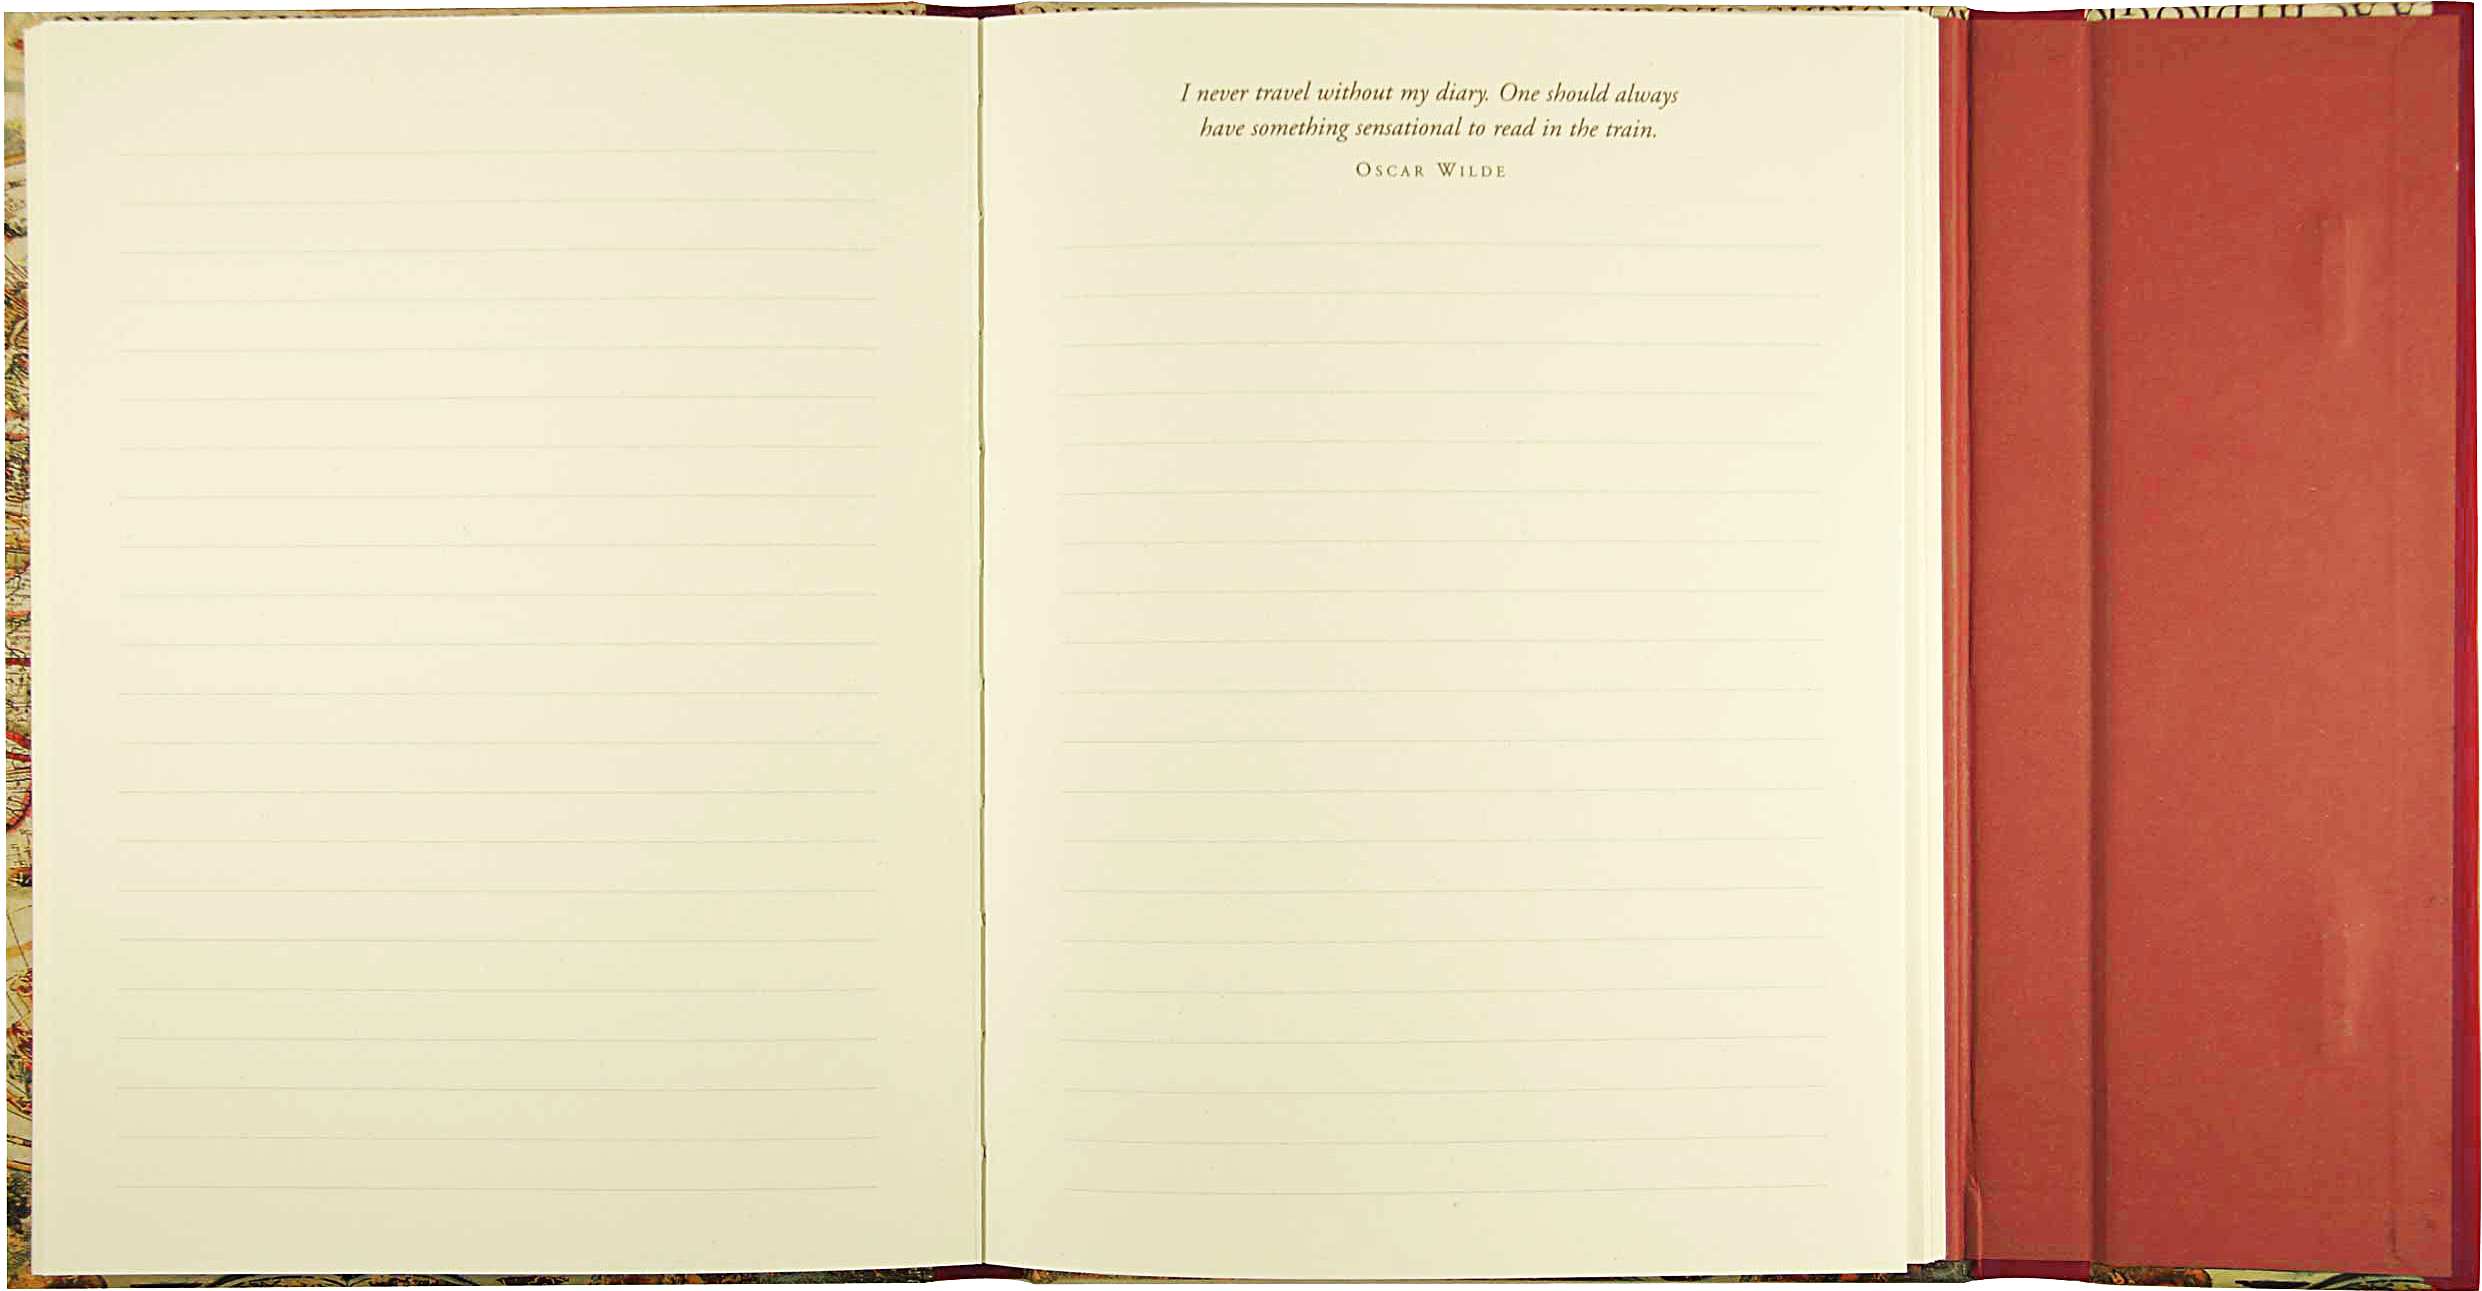 I never travel without my diary. One should always
have something sensational to read in the train.
OSCAR WILDE